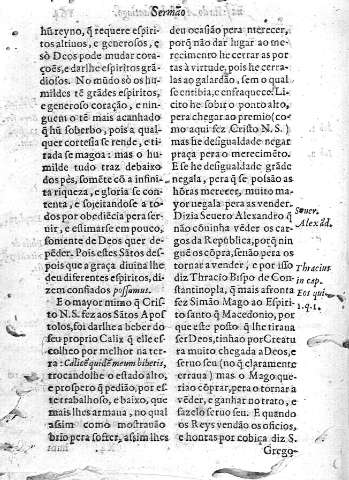 Sermão
hũ reyno, q̃ requere espiri-
tos altiuos, e generosos, e
sò Deos pode mudar cora-
çoẽs, e darlhe espiritos grã-
diosos. No mũdo sò os hu-
mildes tẽ grãdes espiritos,
e generoso coração, e nin-
guem o tẽ mais acanhado
q̃ hũ soberbo, pois a qual-
quer cortesia se rende, e ti-
rada se magoa: mas o hu-
milde tudo traz debaixo
dos pés, somẽte cõ a infini-
ta riqueza, e gloria se con-
tenta, e sojeitandose a to-
dos por obediẽcia pera ser-
uir, e estimarse em pouco,
somente de Deos quer de-
pẽder. Pois estes Sãtos des-
pois que a graça diuina lhe
deu diferentes espiritos, di-
zem confiados possumus.
E o mayor mimo q̃ Cris-
to N.S. fez aos Sãtos Apos-
tolos, foi darlhe a beber do
seu proprio Calix q̃ elle es-
colheo por melhor na ter-
ra: Calicẽ quidẽ meum bibetis,
trocandolhe o estado alto,
e prospero q̃ pedião, por es-
te trabalhoso, e baixo, que
mais lhes armaua, no qual
assim como mostrauão
brio pera sofrer, assim lhes
deu ocasião pera merecer,
porq̃ não dar lugar ao me-
recimento he cerrar as por-
tas à virtude, pois he cerra-
las ao galardão, sem o qual
se entibia, e enfraquece. Li-
cito he sobir o ponto alto,
pera chegar ao premio (co-
mo aqui fez Cristo N.S.)
mas he desigualdade negar
praça pera o merecimẽto.
E se he desigualdade grãde
negala, pera q̃ se possão as
hõras merecer, muito ma-
yor negala pera as vender.
Dizia Seuero Alexandro q̃
não cõuinha vẽder os car-
gos da Republica, porq̃ nin
guẽ os cõpra, senão pera os
tornar a vender, e por isso
diz Thracio Bispo de Con-
stantinopla, q̃ mais afronta
fez Simão Mago ao Espiri-
to santo q̃ Macedonio, por
que este posto q̃ lhe tiraua
ser Deos, tinhao por Creatu
ra muito chegada a Deos, e
seruo seu (no q̃ claramente
erraua) mas o Mago que-
riao cõprar, pera o tornar a
vẽder, e ganhar no trato, e
fazelo seruo seu. E quando
os Reys vendão os oficios,
e honras por cobiça diz S.
Grego-
Seuer.
Alexãd.
Thracius
in cap.
Eos qui.
1.q.1.